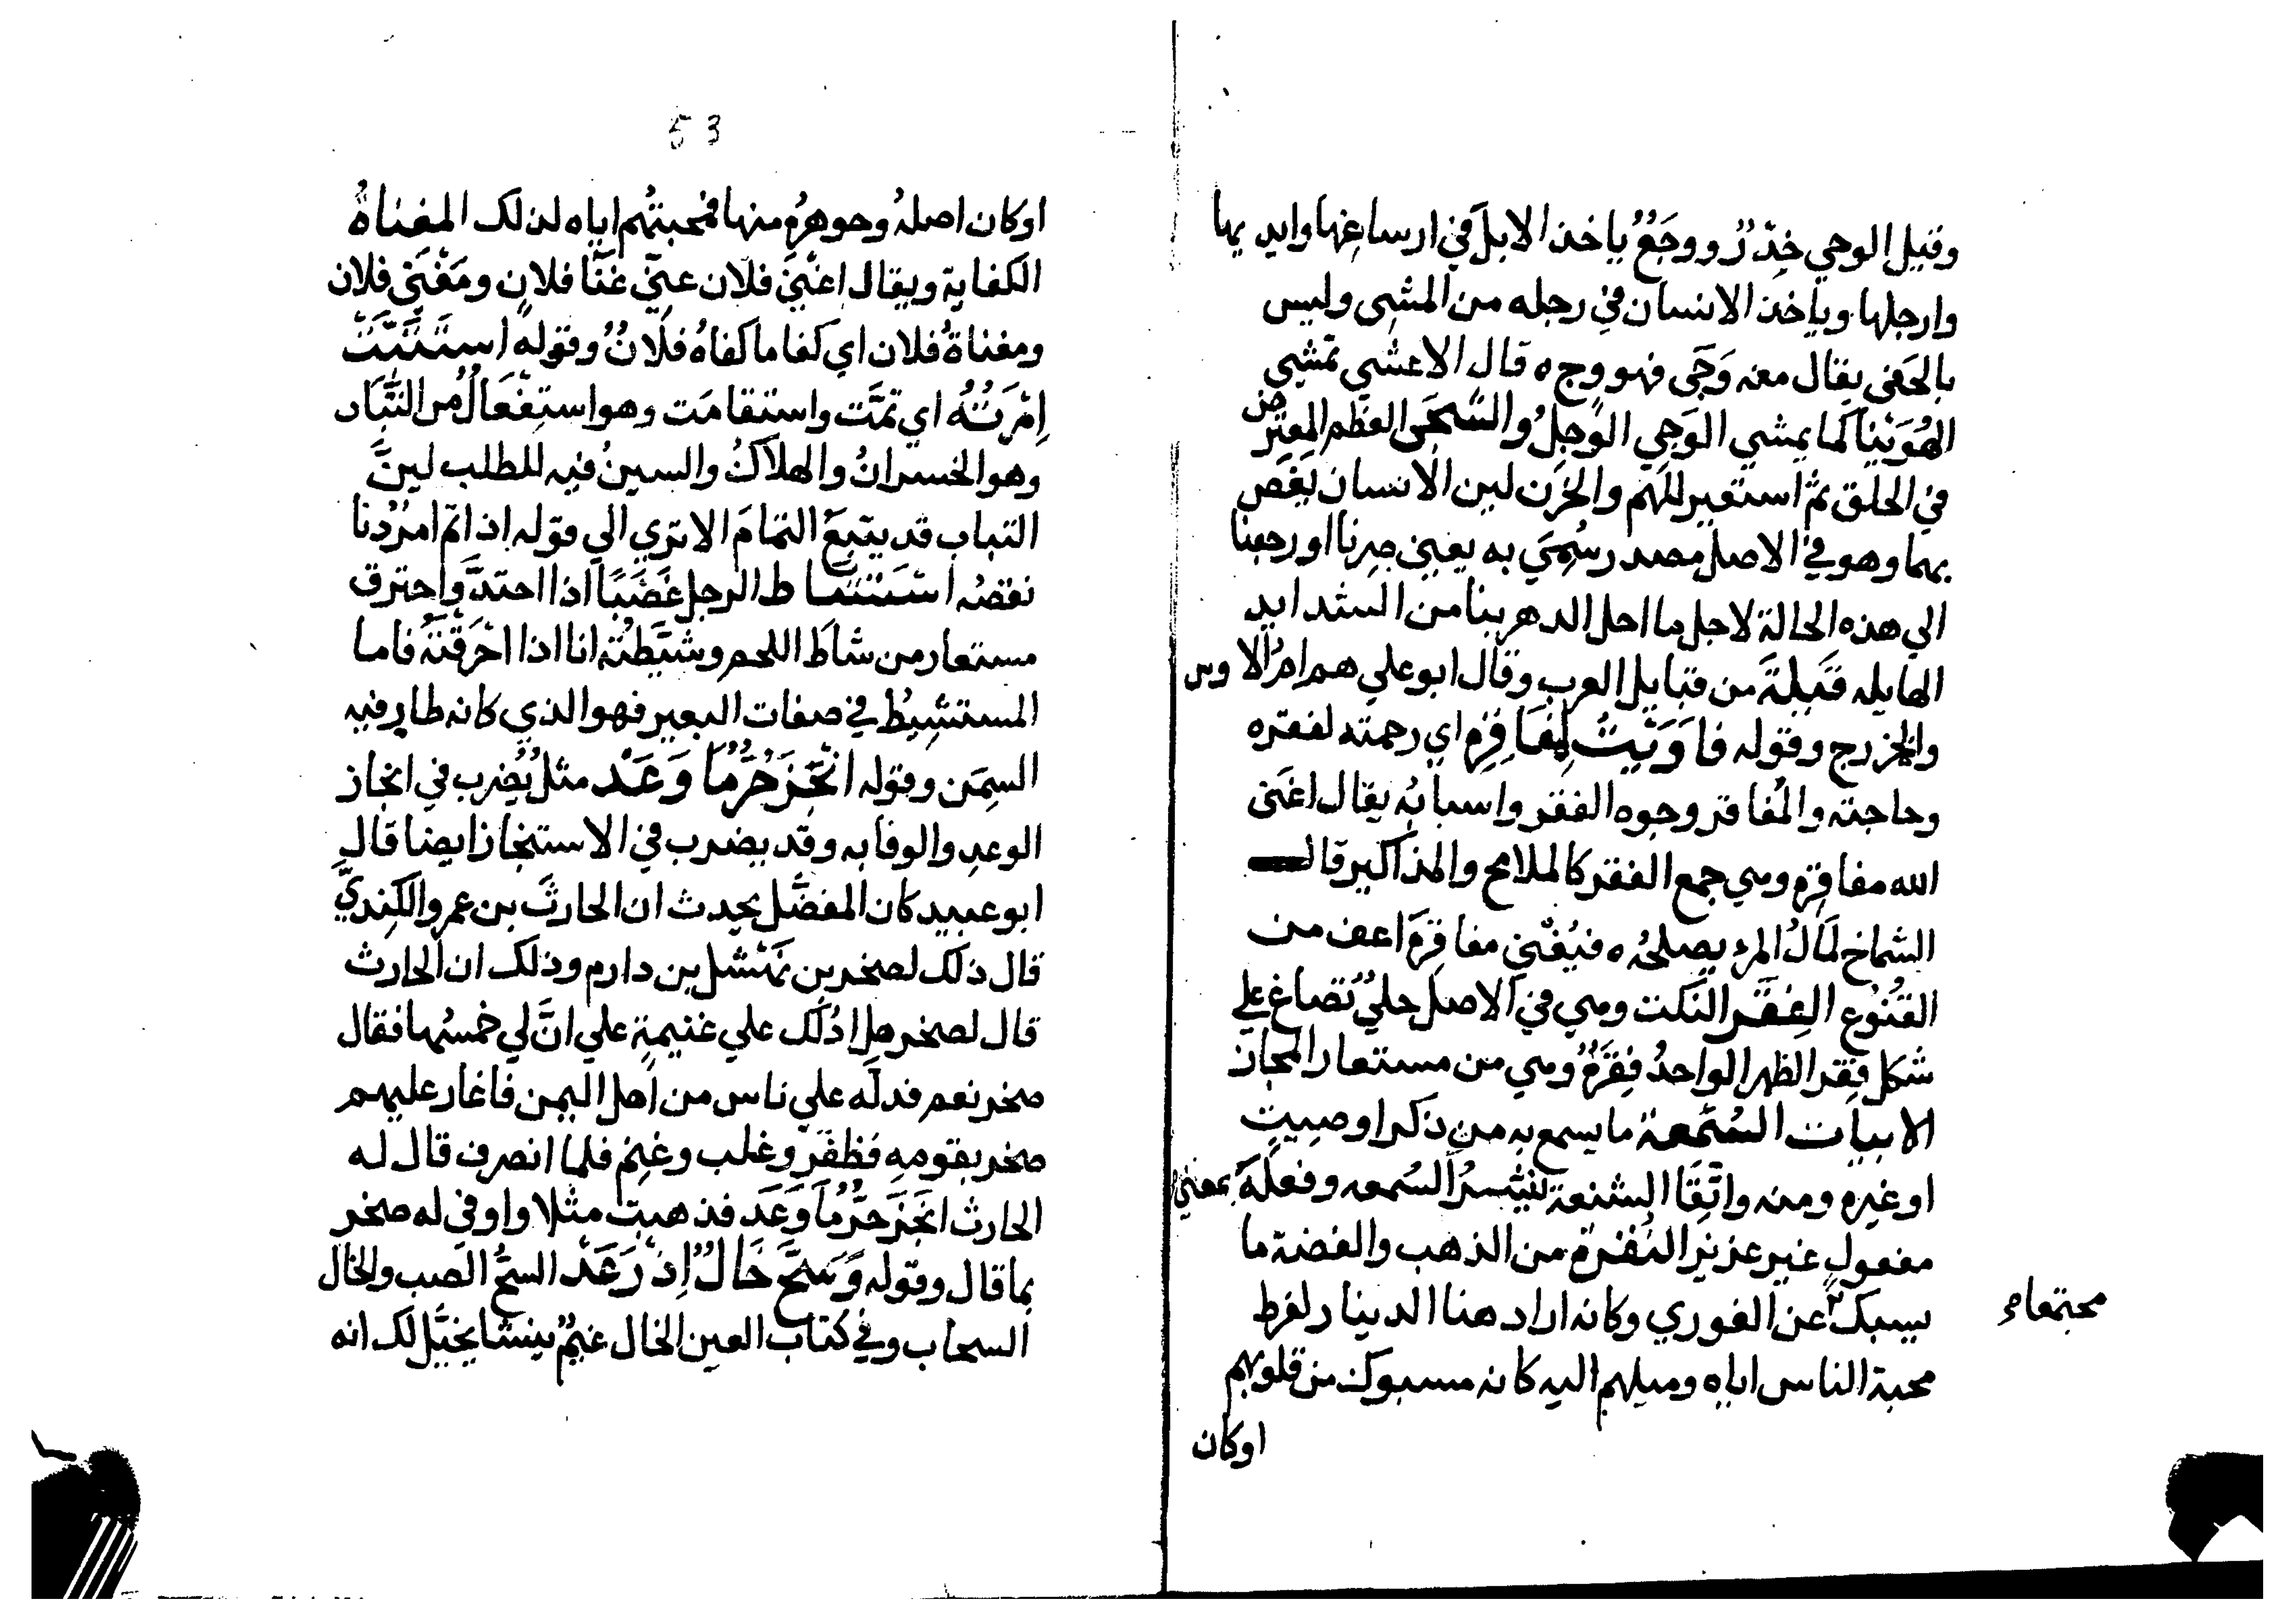 وقيل الوجي خِدْرٌ ووجَعٌ ياخذ الابل في ارساغها وايديها
وارجلها وياخذ الانسان في رجله من المشي وليس
بالحَفى يقال معه وَجَى فهو وجٍ ه قال الاعشي تمشي
الهُوَيْنا كما يمشي الوَجِي الوَجِلُ والشَّجَى العظم المعترض
في الحلق ثم استعير للهم والحَزَن لين الانسان يَغَصّ
بهما وهو في الاصل مصدر سُمِّيَ به يعني صرنا او رجعنا
الي هذه الحالة لاجل ما احل الدهر بنا من الشدايد
الهايله قَيْلَةَ من قبايل العرب وقال ابو علي هم ام الاوس
والخزرج وقوله فاَوَيْتُ لِمَفَاقِرِهِ اي رحمته لفقره
وحاجته والمَفاقر وجوه الفقر واسبابُه يقال اغنى
الله مفاقِرَه وهي جمع الفقر كالملامح والمذاكير قال
الشماخ لَمَالُ المرء يصلحُه ه فيُغْني مفاقِرَه اعف من
القُنُوع الفِقَر النكت وهي في الاصل حليٌ تُصاغ علي
شكل فِقَر الظهر الواحدُ فِقَرَةٌ وهي من مستعار المجاز
الابيات السُّمْعة ما يسمع به من ذكر او صيت
او غيره ومنه واتّقَا الشنعة بنَشْر السُمعه وفعلة بمعنى
مفعول غير عزيز النُقْرة من الذهب والفضة ما
سبك عن الغوري وكانه اراد هنا الدينار لفرط
مجتمعا
محبة الناس اياه وميلهم اليه كانه مسبوك من قلوبهم
اوكان
53
اوكان اصلهُ وجوهرُه منها فمحبتُهم اياه لذلك المغناةُ
الكفاية ويقال اغنيَ فلان عنّي غَنَا فلانٍ ومَغْنَى فلان
ومغناةُ فلان اي كفا ما كفاهُ فلانٌ وقوله استَتَبَّتْ
اِمْرَتُهُ اي تمَّت واستقامَت وهو استِفْعَالٌ من التَّبَاب
وهو الخسرانُ والهلاكُ والسينُ فيه للطلب لينَّ
التباب قد يتبعَ التمامَ الا تري الي قوله اذا تم امرٌ دنا
نقصُه استَشَاط الرجل غَضَبًا اذا احتدَّ واحترق
مستعار من شاطَ اللحم وشَيَّطتُه انا اذا احرَقْتَهُ فاما
المستشِيطُ في صفات البعير فهو الذي كانه طار فيه
السِمَن وقوله اَنْجَزَ حُرٌّ مَا وَعَدْ مثلٌ يُضرب في انجاز
الوعدِ والوفا به وقد يضرب في الاستنجاز ايضا قال
ابو عبيد كان المفضَّل يحدث ان الحارثَ بن عمرو الكِنْديَّ
قال ذلك لصخر بن نَهْشل بن دارم وذلك ان الحارث
قال لصخر هل ادُلُّك علي غنيمةٍ علي انَّ لي خمسُها فقال
صخر نعم فدلَّه علي ناس من اهل اليمن فاغار عليهم
صخر بقومِه فظَفَرَ وغلب وغنِم فلما انصرف قال له
الحارث انجَزَ حرٌّ ما وَعَد فذهبت مثلا واوفَى له صخر
بما قال وقوله وَسَحَّ خَالٌ اِذْ رَعَدْ السحُّ الصب والخال
السحاب وفي كتاب العين الخال غيمٌ ينشا يخيَّل لك انه